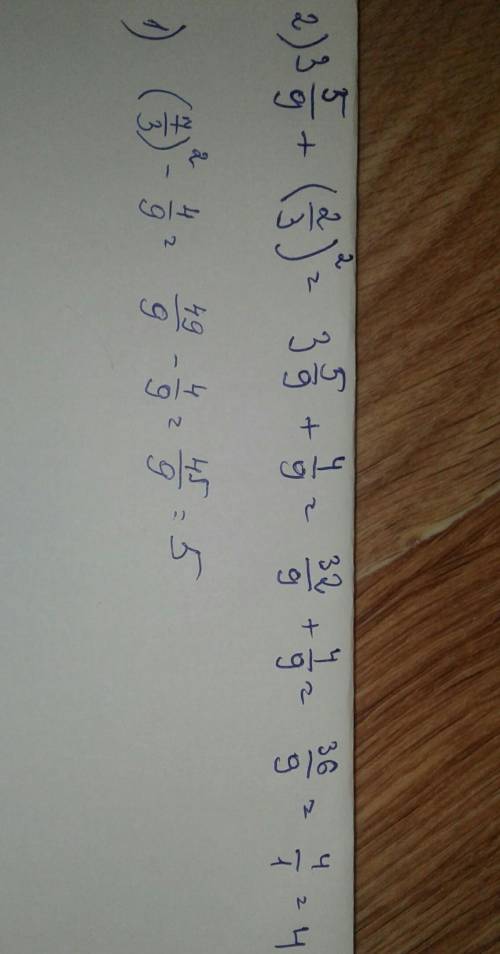 2) 3 5/9 + (2/3)² = 3 5/9 + 4/9 = 32/9 + 4/9 = 36/9 = 4/1 = 4
1) (7/3)² - 4/9 = 49/9 - 4/9 = 45/9 = 5